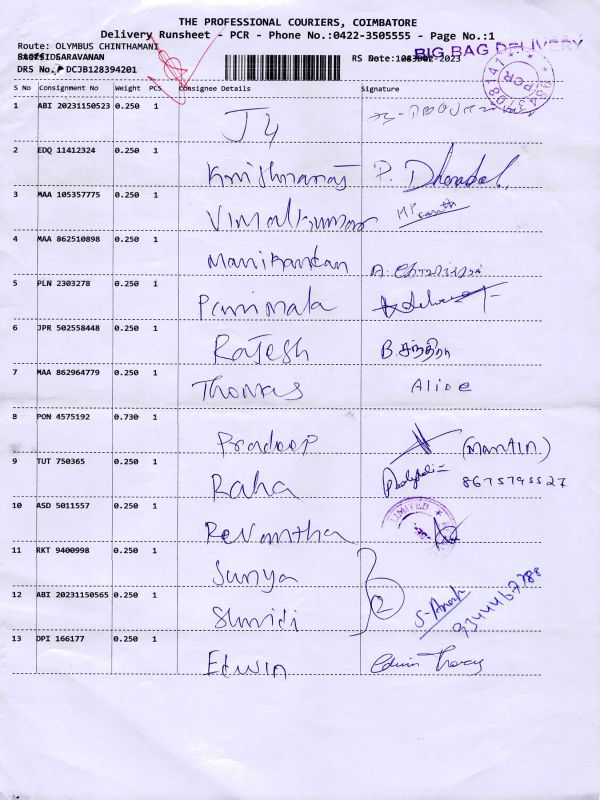 THE PROFESSIONAL COURIERS, COIMBATORE
Delivery Runsheet - PCR - Phone No.:0422-3505555 - Page No.:1
Route: OLYMBUS CHINTHAMANI
BIG BAG DELIVERY
SARAVANAN
RS Note:
DRS No. DCJB128394201
S No Consignment No Weight PCS Consignee Details Signature
1 ABI 20231150523 0.250 1 J4
2 EDQ 11412324 0.250 1 Krishnaraj P. Dhanabal
3 MAA 105357775 0.250 1 Vimalkumar
4 MAA 862510898 0.250 1 Manikandan
5 PLN 2303278 0.250 1 Parimala
6 JPR 502558448 0.250 1 Rajesh B.சந்திரா
7 MAA 862964779 0.250 1 Thomas Alice
8 PON 4575192 0.730 1 Pradeep (Martin)
9 TUT 750365 0.250 1 Raha 8675795527
10 ASD 5011557 0.250 1 Revantha LIMITED
11 RKT 9400998 0.250 1 Surya
2
12 ABI 20231150565 0.250 1 Shruti 9344467788
13 DPI 166177 0.250 1 Edwin Edwin